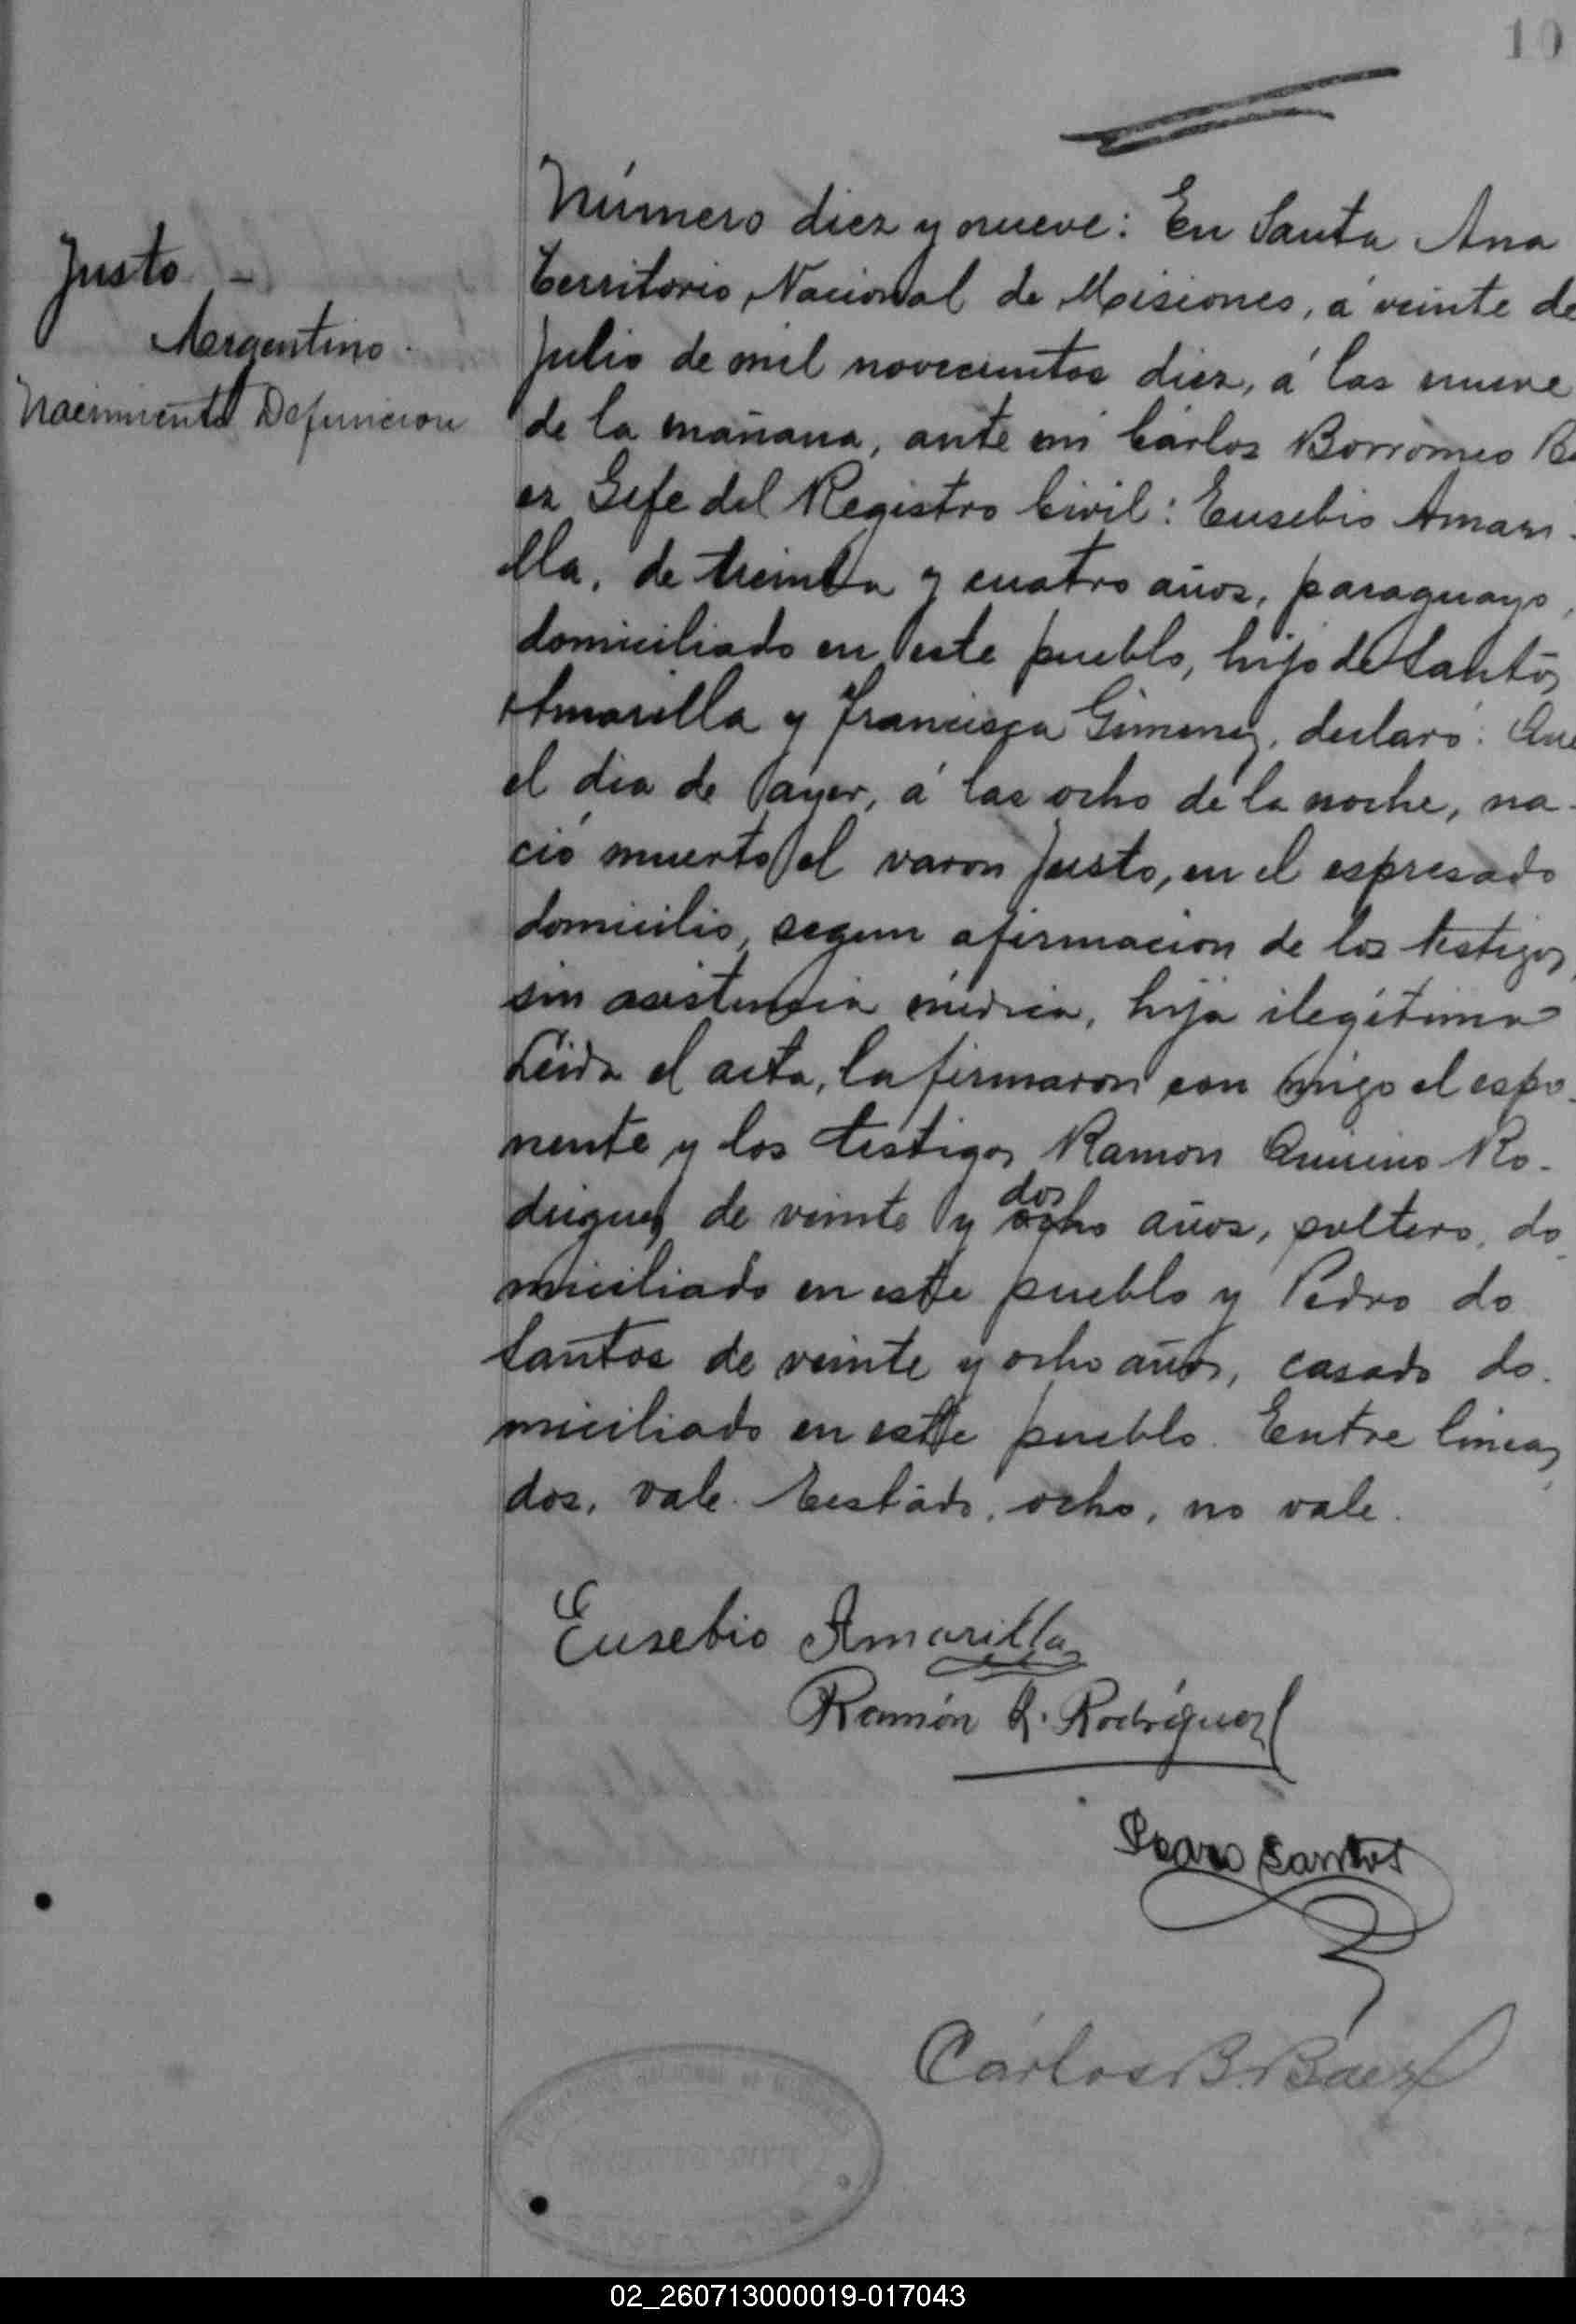 10
Justo -
Argentino.
Nacimiento Defuncion
Número diez y nueve: En Santa Ana
Territorio Nacional de Misiones, á veinte de
Julio de mil novecientos diez, á las nueve
de la mañana, ante mi Cárlos Borromeo B
ez Gefe del Registro Civil: Eusebio Amari-
lla, de treinta y cuatro años, paraguayo,
domiciliado en este pueblo, hijo de Santos
Amarilla y Francisca Gimenez, declaró: Que
el dia de ayer, á las ocho de la noche, na-
ció muerto el varon Justo, en el espresado
domicilio, segun afirmacion de los testigos,
sin asistencia médica, hija ilegítima
Leida el acta, la firmaron con migo el espo-
nente y los testigos Ramon Quirino Ro-
driguez de veinte y dos ocho años, soltero, do-
miciliado en este pueblo y Pedro do
Santos de veinte y ocho años, casado do-
miciliado en este pueblo. Entre lineas,
dos, vale. Testado, ocho, no vale.
Eusebio Amarilla
Ramón Q. Rodríguez
Santos
Cárlos B. Báez
02_260713000019-017043